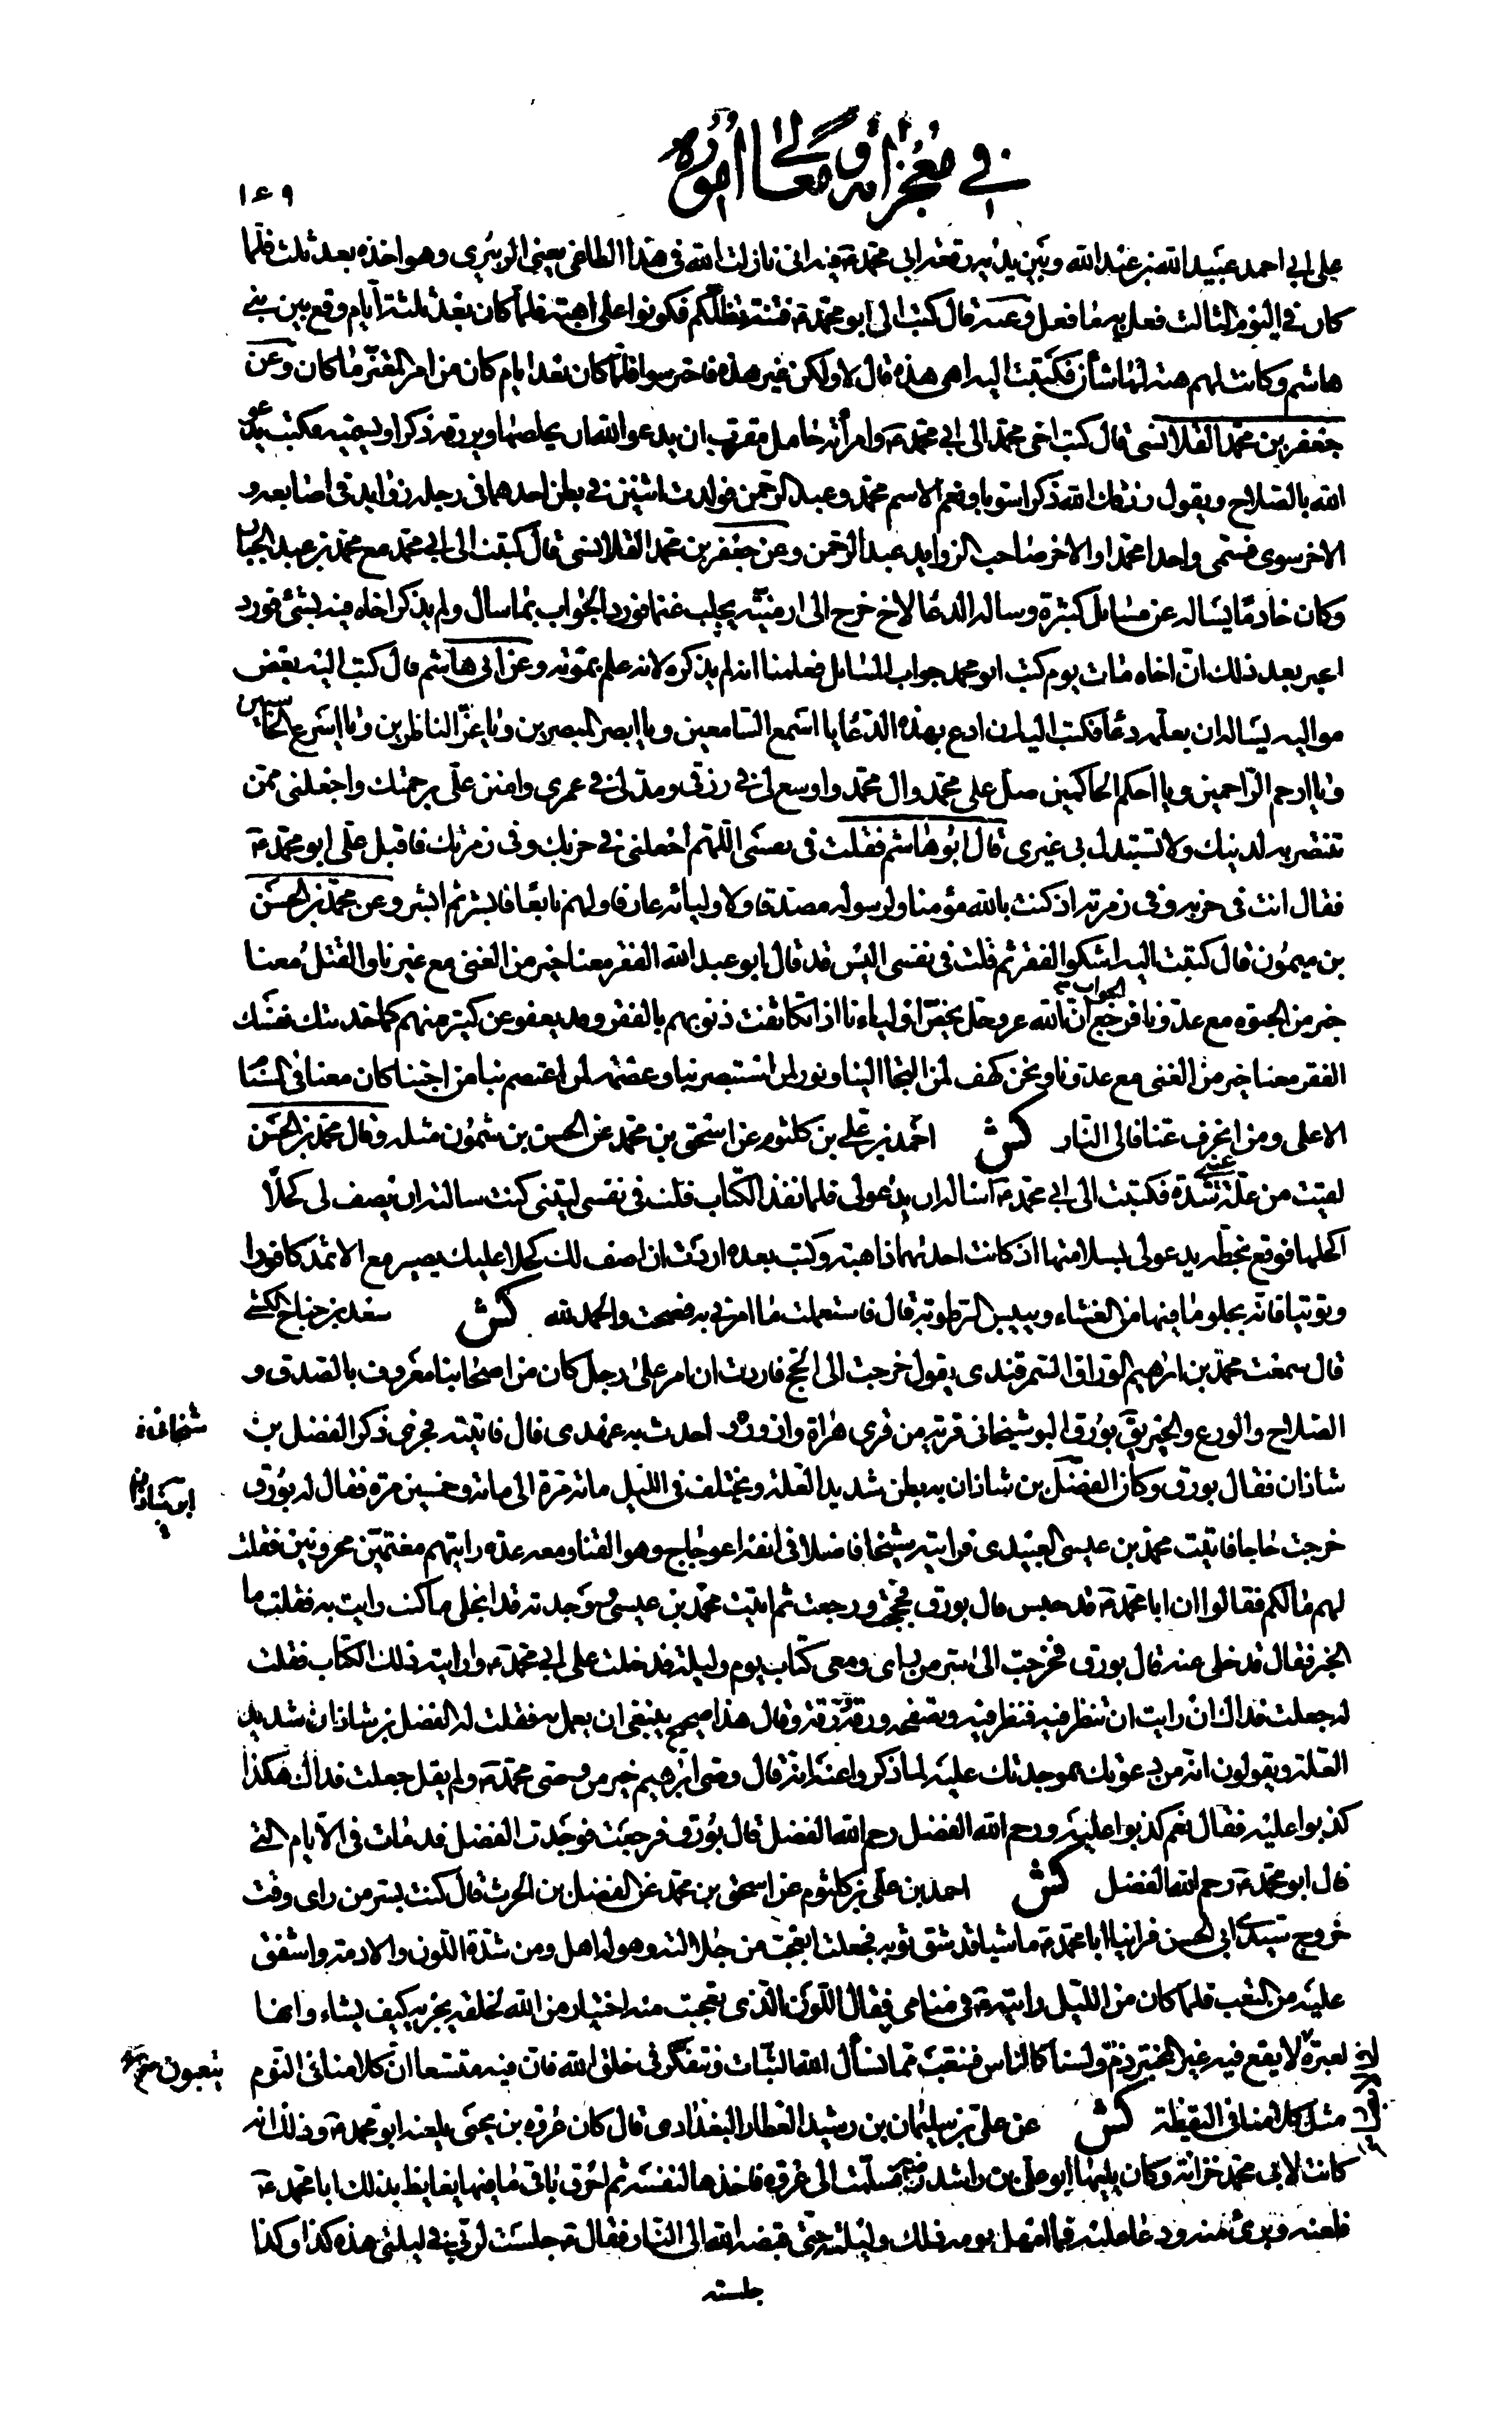 في معجزاته و معالي اموره
١٤٩
على ابي احمد عبيد الله بن عبد الله وبين يديه رقعة ابي محمد ع فيه اني نازلت الله في هذا الطاغي يعني الزبيري وهو اخذه بعد ثلث فلما
كان في اليوم الثالث فعل به ما فعل وعنه قال كتب الي ابو محمد ع فتنة تظلكم فكونوا على اهبة فلما كان بعد ثلثة ايام وقع بين بني
هاشم وكانت لهم هنة لها شأن فكتبت اليه اهي هذه قال لا ولكن غير هذه فاحترسوا فلما كان بعد ايام كان من امر المعتز ما كان وعن
جعفر بن محمد القلانسي قال كتب اخي محمد الى ابي محمد ع وامرأته حامل مقرب ان يدعو الله ان يخلصها ويرزقه ذكرا ويسميه فكتب يدعو
الله بالصلاح ويقول رزقك الله ذكرا سويا ونعم الاسم محمد وعبد الرحمن فولدت اثنين في بطن احدهما في رجله زوايد في اصابعه و
الاخر سوى فسمى واحدا محمدا والاخر صاحب الزوايد عبد الرحمن وعن جعفر بن محمد القلانسي قال كتبت الى ابي محمد مع محمد بن عبد الجبار
وكان خادما يساله عن مسايل كثيرة وساله الدعا لاخ خرج الى ارمنية يجلب غنما فورد الجواب بما سال ولم يذكر اخاه فيه بشئ فورد
الخبر بعد ذلك ان اخاه مات يوم كتب ابو محمد جواب المسايل فعلمنا انه لم يذكره لانه علم بموته وعن ابي هاشم قال كتب اليه بعض
مواليه يساله ان يعلمه دعا فكتب اليه ان ادع بهذه الدعا يا اسمع السامعين ويا ابصر المبصرين ويا عز الناظرين ويا اسرع الحاسبين
ويا ارحم الراحمين ويا احكم الحاكمين صل على محمد وال محمد واوسع لي في رزقي ومد لي في عمري وامنن علي برحمتك واجعلني ممن
تنتصر به لدينك ولا تستبدل بي غيري قال ابو هاشم فقلت في نفسي اللهم اجعلني في حزبك وفي زمرتك فاقبل علي ابو محمد ع
فقال انت في حزبه وفي زمرته ان كنت بالله مؤمنا ولرسوله مصدقا ولاوليائه عارفا ولهم تابعا فابشر ثم ابشر وعن محمد بن الحسن
بن ميمون قال كتبت اليه اشكو الفقر ثم قلت في نفسي اليس قد قال ابو عبد الله الفقر معنا خير من الغنى مع غيرنا والقتل معنا
خير من الحيوة مع عدونا فرجع الجواب ان الله عز وجل يخص اولياءنا اذا تكاثفت ذنوبهم بالفقر وقد يعفو عن كثير منهم كما حدثتك نفسك
الفقر معنا خير من الغنى مع عدونا ونحن كهف لمن التجا الينا ونور لمن استبصر بنا وعصمة لمن اعتصم بنا من احبنا كان معنا في السنام
الاعلى ومن انحرف عنا فالى النار كش احمد بن علي بن كلثوم عن اسحق بن محمد عن الحسن بن شمون مثله وقال محمد بن الحسن
لقيت من علة عيني شدة فكتبت الى ابي محمد ع اساله ان يدعو لي فلما نفذ الكتاب قلت في نفسي ليتني كنت سالته ان يصف لي كحلا
اكحلها فوقع بخطه يدعو لي بسلامتها اذ كانت احديهما ذاهبة وكتب بعده اردت ان اصف لك كحلا عليك بصبر مع الاثمد كافورا
وتوتيا فانه يجلو ما فيها من الغشاء وييبس الرطوبة قال فاستعملت ما امرني به فصحت والحمد لله كش سعد بن جناح الكشي
قال سمعت محمد بن ابرهيم الوراق السمرقندي يقول خرجت الى الحج فاردت ان امر على رجل كان من اصحابنا معروف بالصدق و
الصلاح والورع والخير يق بورق البوشنجاني قرية من قرى هراة وازوره و احدث به عهدي قال فاتيته فجرى ذكر الفضل بن
شاذان فقال بورق وكان الفضل بن شاذان به بطن شديد العلة ويختلف في الليل مائة مرة الى مائة وخمسين مرة فقال له بورق
خرجت حاجا فاتيت محمد بن عيسى العبيدي فرايته شيخا فاضلا في انفه اعوجاج وهو القنا ومعه عدة رايتهم مغتمين محزونين فقلت
لهم ما لكم فقالوا ان ابا محمد ع قد حبس قال بورق فحججت ورجعت ثم اتيت محمد بن عيسى ووجدته قد انجلى ما كنت رايت به فقلت ما
الخبر فقال قد خلي عنه قال بورق فخرجت الى سر من راى ومعي كتاب يوم وليلة فدخلت على ابي محمد ع واريته ذلك الكتاب فقلت
له جعلت فداك ان رايت ان تنظر فيه فنظر فيه وتصفحه ورقة ورقة وقال هذا صحيح ينبغي ان يعمل به فقلت له الفضل بن شاذان شديد
العلة ويقولون انه من دعوتك بموجدتك عليه لما ذكروا عنه انه قال وصي ابرهيم خير من وصي محمد ص ولم يقل جعلت فداك هكذا
كذبوا عليه فقال نعم كذبوا عليه ورحم الله الفضل رحم الله الفضل قال بورق فرجعت فوجدت الفضل قد مات في الايام التي
قال ابو محمد ع رحم الله الفضل كش احمد بن علي بن كلثوم عن اسحق بن محمد عن الفضل بن الحرث قال كنت بسر من راى وقت
خروج سيدي ابي الحسن فراينا ابا محمد ع ماشيا قد شق ثوبه فجعلت اتعجب من جلالته وهو له اهل ومن شدة اللون والادمة واشفق
عليه من التعب فلما كان من الليل رايته ع في منامي فقال اللون الذي تعجبت منه اختيار من الله لخلقه يجريه كيف يشاء وانها
لعبرة لا يقع فيه غير المختبر ذم ولسنا كالناس فنتعب مما نسأل الله الثبات ونتفكر في خلق الله فان فيه متسعا ان كلامنا في النوم
مثل كلامنا في اليقظة كش عن علي بن سليمان بن رشيد العطار البغدادي قال كان عروة بن يحيى يلعنه ابو محمد ع وذلك انه
كانت لابي محمد خزانة وكان يليها ابو علي بن راشد رض فسلمت الى عروة فاخذها لنفسه ثم احرق باقي ما فيها يغايظ بذلك ابا محمد ع
فلعنه وبرئ منه ودعا عليه فما امهل يومه ذلك وليلته حتى قبضه الله الى النار فقال ع جلست لربي في ليلتي هذه كذا وكذا
جلسة